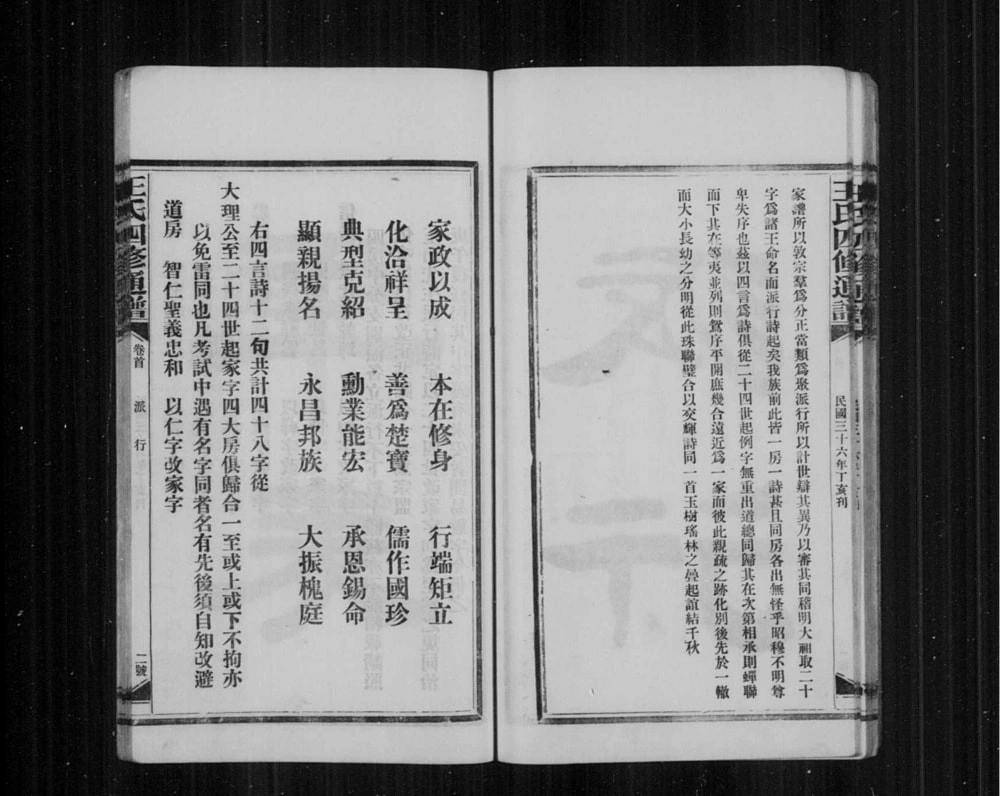 王氏四修通譜
民國三十六年丁亥刊
家譜所以敦宗羣爲分正當類爲聚派行所以計世辯其異乃以審其同稽明大祖取二十
字爲諸王命名而派行詩起矣我族前此皆一房一詩甚且同房各出無怪乎昭穆不明尊
卑失序也茲以四言爲詩俱從二十四世起例字無重出道總同歸其在次第相承則蟬聯
而下其在等夷並列則鴛序平開庶幾合遠近爲一家而彼此親疏之跡化別後先於一轍
而大小長幼之分明從此珠聯璧合以交輝詩同一首玉樹瑤林之疊起誼結千秋
家政以成 本在修身 行端矩立
化洽祥呈 善爲楚寶 儒作國珍
典型克紹 勳業能宏 承恩錫命
顯親揚名 永昌邦族 大振槐庭
右四言詩十二句共計四十八字從
大理公至二十四世起家字四大房俱歸合一至或上或下不拘亦
以免雷同也凡考試中遇有名字同者名有先後須自知改避
道房 智仁聖義忠和 以仁字改家字
王氏四修通譜
卷首
派行
二號